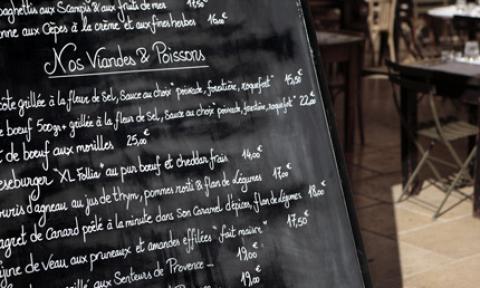 17,50
paghettis aux Scampis & aux fruits de mer
enne aux Cèpes à la crème et aux fines herbes 16,00€
Nos Viandes & Poissons
côte grillée à la fleur de Sel, Sauce au choix "poivrade, forestière, roquefort" 15,50€
e boeuf 500gr+ grillée à la fleur de Sel, Sauce au choix "poivrade, forestière, roquefort" 22,00€
t de boeuf aux morilles 25,00€
eseburger "XL Follia" au pur boeuf et cheddar frais 14,00€
ouris d'agneau au jus de thym, pommes roti & flan de Légumes 17,00€
agret de Canard poêlé à la minute dans Son Caramel d'épices, flan de Légumes 18,00€
jine de veau aux pruneaux et amandes effilées "fait maison" 17,50€
grillé aux Senteurs de Provence _ 19,00€
19,00€